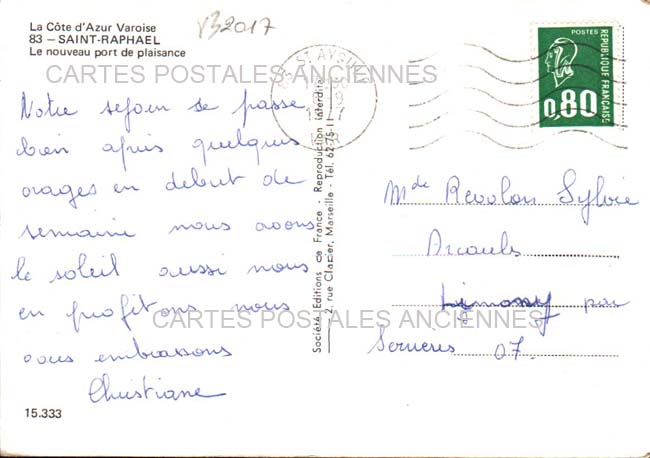 La Côte d'Azur Varoise
83 — SAINT-RAPHAEL
Le nouveau port de plaisance
VB2017
CARTES POSTALES ANCIENNES
Notre séjour se passe
bien après quelques
orages en début de
semaine nous avons
le soleil aussi nous
en profitons nous
vous embrassons
Christiane
15.333
Société Editions de France - Reproduction interdite
2, rue Clapier, Marseille - Tél. 62-75-11
ST AYGULF
POSTES
REPUBLIQUE FRANÇAISE
0,80
Mde Revolon Sylvie
Arcoules
Limony par
Serrieres 07.
CARTES POSTALES ANCIENNES